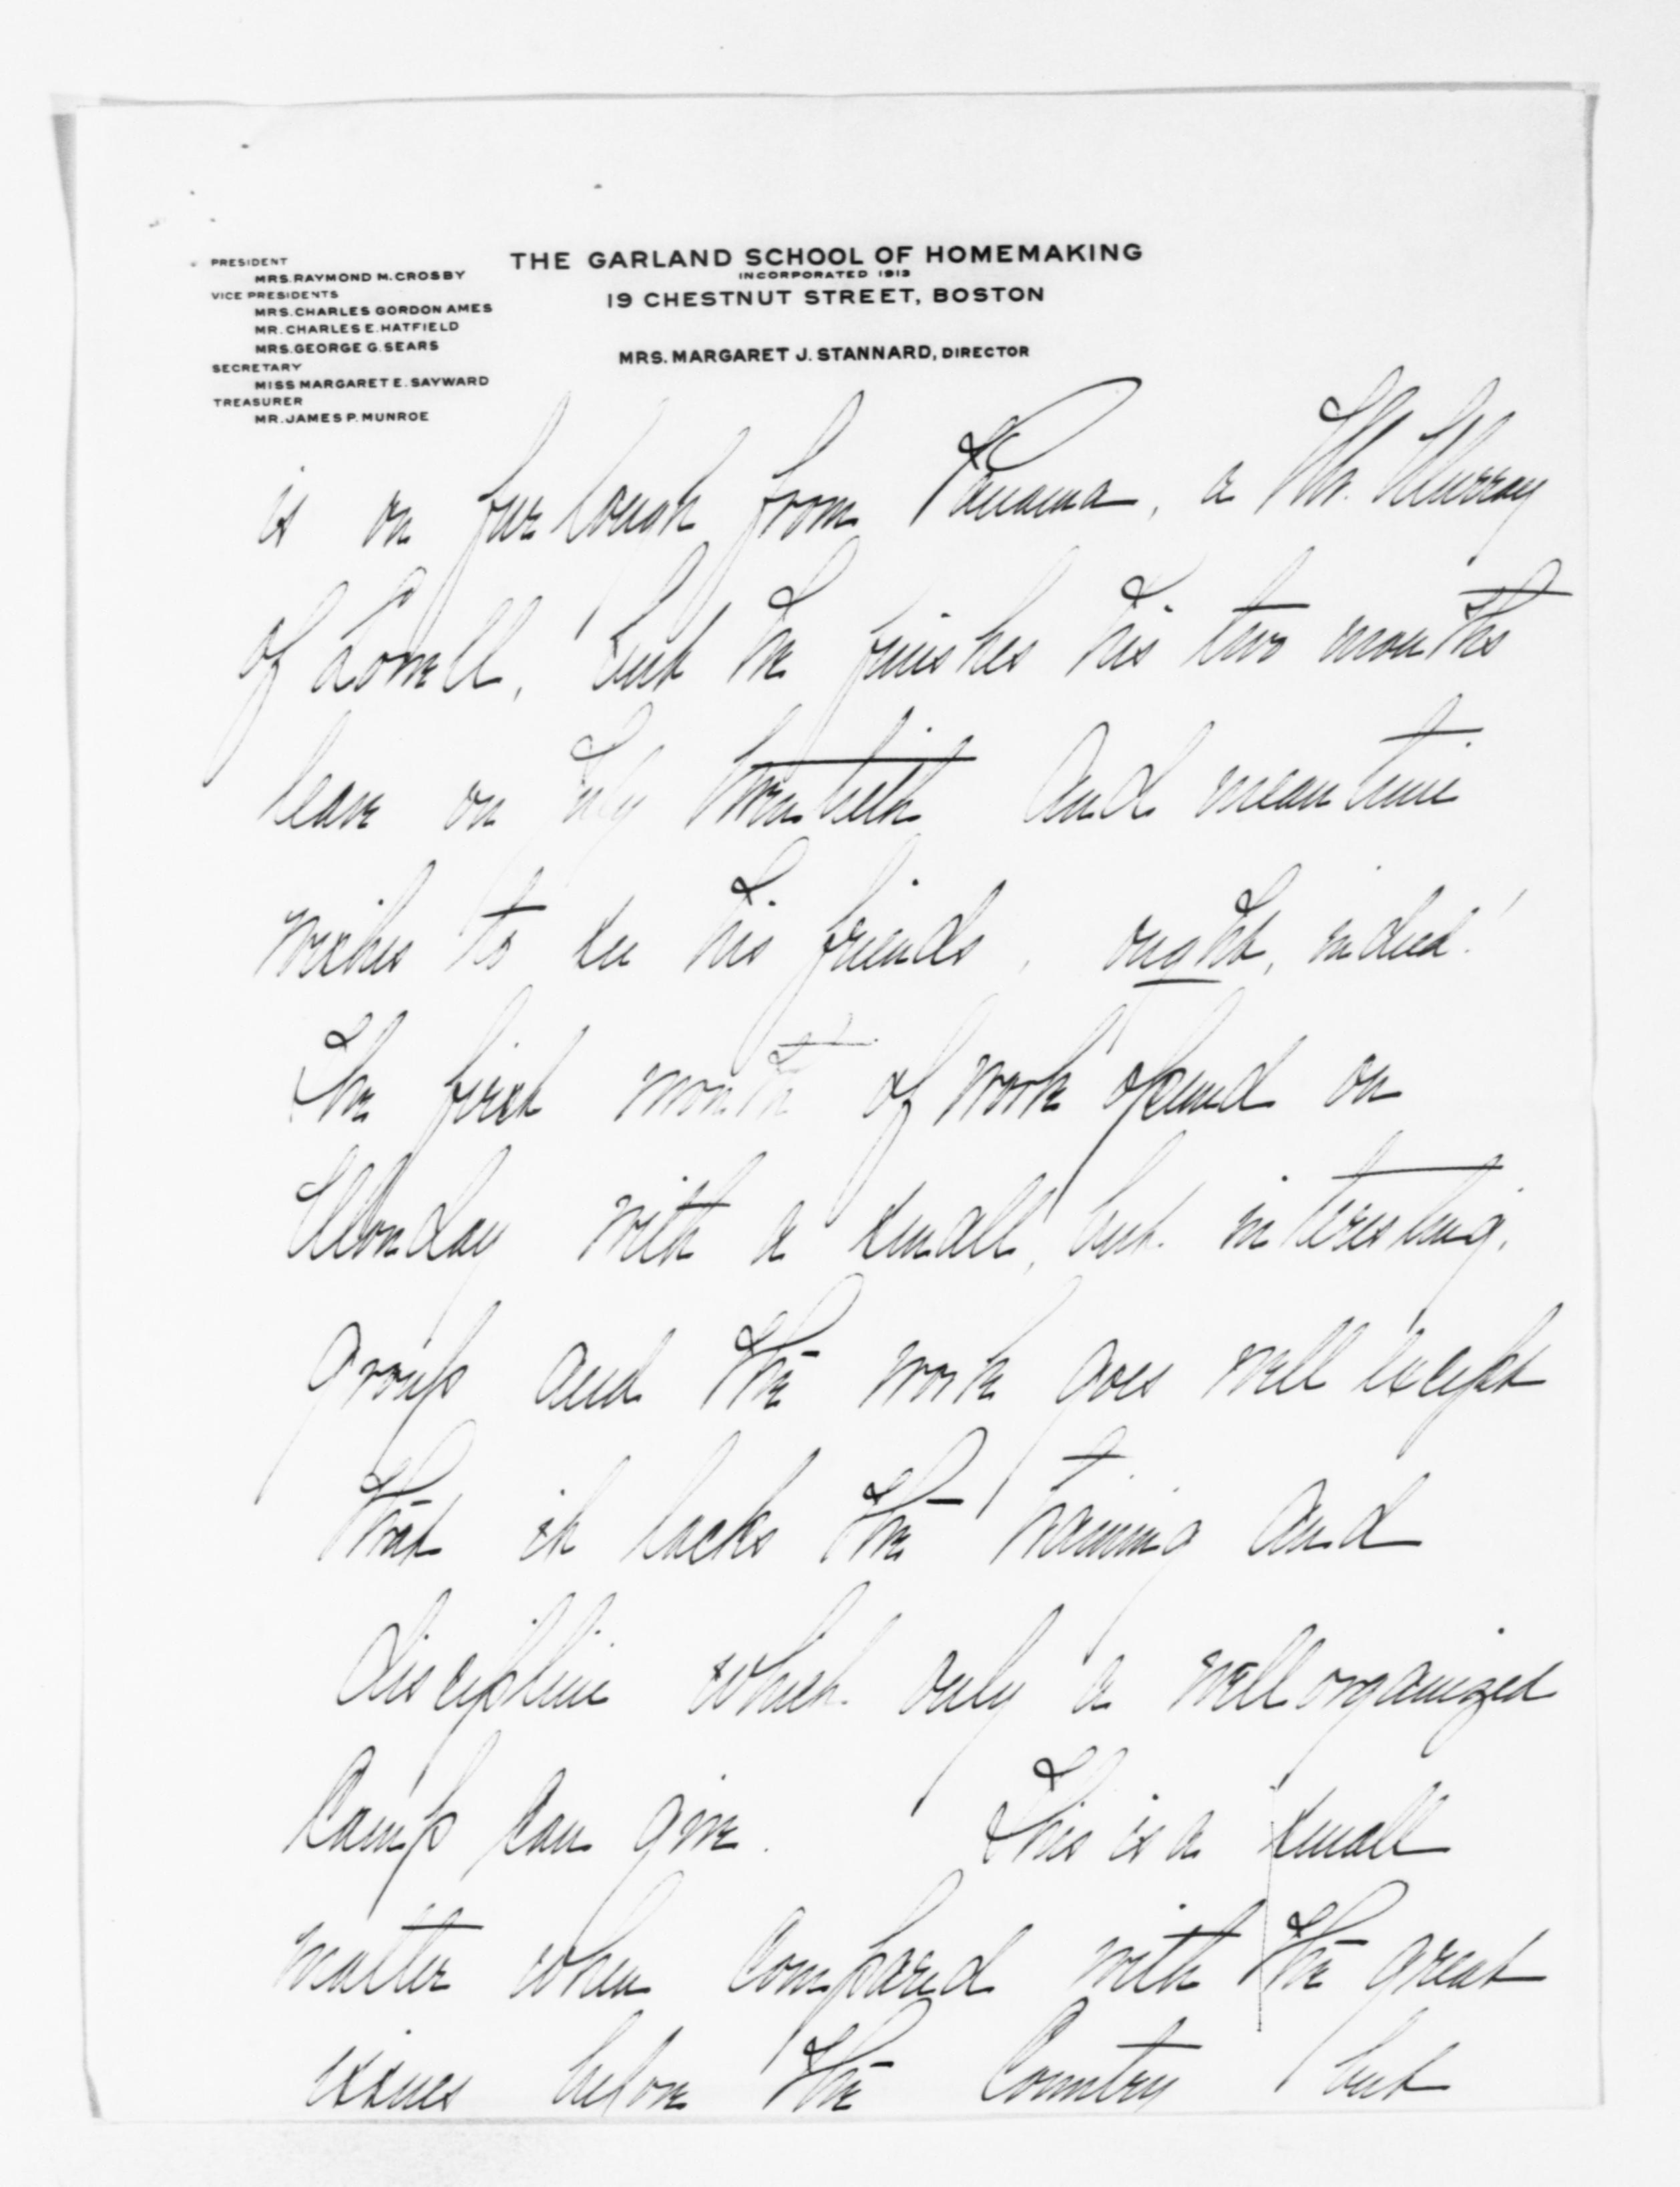 THE GARLAND SCHOOL OF HOMEMAKING
INCORPORATED 1913
19 CHESTNUT STREET, BOSTON
MRS. MARGARET J. STANNARD, DIRECTOR
PRESIDENT
MRS. RAYMOND M. CROSBY
VICE PRESIDENTS
MRS. CHARLES GORDON AMES
MR. CHARLES E. HATFIELD
MRS. GEORGE G. SEARS
SECRETARY
MISS MARGARET E. SAYWARD
TREASURER
MR. JAMES P. MUNROE
is on furlough from Panama, a Mr. Murray
of Lowell, but he finishes his two months
leave on July twentieth and meantime
wishes to see his friends, ought, indeed!
The first month of work opened on
Monday with a small, but interesting,
group and the work goes well except
that it lacks the training and
discipline which only a well organized
camp can give. This is a small
matter when compared with the great
issues before the Country but